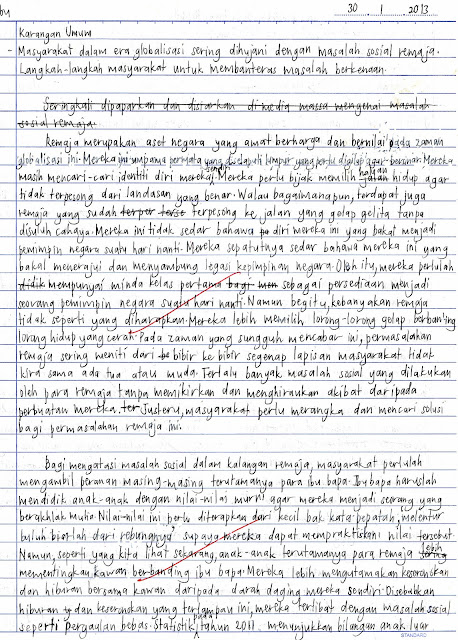 30 1 2013
Karangan Umum
- Masyarakat dalam era globalisasi sering dihujani dengan masalah sosial remaja.
Langkah-langkah masyarakat untuk membanteras masalah berkenaan.
Seringkali dipaparkan dan disiarkan di media massa mengenai masalah
sosial remaja.
Remaja merupakan aset negara yang amat berharga dan bernilai pada zaman
globalisasi ini. Mereka ini umpama permata yang diselaputi lumpur yang perlu digilap agar bersinar. Mereka
masih mencari-cari identiti diri mereka sendiri. Mereka perlu bijak memilih jalan haluan hidup agar
tidak terpesong dari landasan yang benar. Walau bagaimanapun, terdapat juga
remaja yang sudah terper terse terpesong ke jalan yang gelap gelita tanpa
disuluh cahaya. Mereka ini tidak sedar bahawa diri mereka ini yang bakal menjadi
pemimpin negara suatu hari nanti. Mereka sepatutnya sedar bahawa mereka ini yang
bakal menerajui dan menyambung legasi kepimpinan negara. Oleh itu, mereka perlulah
didik mempunyai minda kelas pertama sebagai persediaan menjadi
seorang pemimpin negara suatu hari nanti. Namun begitu, kebanyakan remaja
tidak seperti yang diharapkan. Mereka lebih memilih lorong-lorong gelap berbanding
lorong hidup yang cerah. Pada zaman yang sungguh mencabar ini, permasalahan
remaja sering meniti dari bibir ke bibir segenap lapisan masyarakat tidak
kira sama ada tua atau muda. Terlalu banyak masalah sosial yang dilakukan
oleh para remaja tanpa memikirkan dan menghiraukan akibat daripada
perbuatan mereka. Justeru, masyarakat perlu merangka dan mencari solusi
bagi permasalahan remaja ini.
Bagi mengatasi masalah sosial dalam kalangan remaja, masyarakat perlulah
mengambil peranan masing-masing terutamanya para ibu bapa. Ibu bapa haruslah
mendidik anak-anak dengan nilai-nilai murni agar mereka menjadi seorang yang
berakhlak mulia. Nilai-nilai ini perlu diterapkan dari kecil bak kata pepatah, melentur
buluh biarlah dari rebungnya supaya mereka dapat mempraktiskan nilai tersebut.
Namun, seperti yang kita lihat sekarang, anak-anak terutamanya para remaja lebih
mementingkan kawan berbanding ibu bapa. Mereka lebih mengutamakan keseronokan
dan hiburan bersama kawan daripada darah daging mereka sendiri. Disebabkan
hiburan dan keseronokan yang terlampau ini, mereka terlibat dengan masalah sosial
seperti pergaulan bebas. Statistik pada tahun 2011 menunjukkan bilangan anak luar
STANDARD